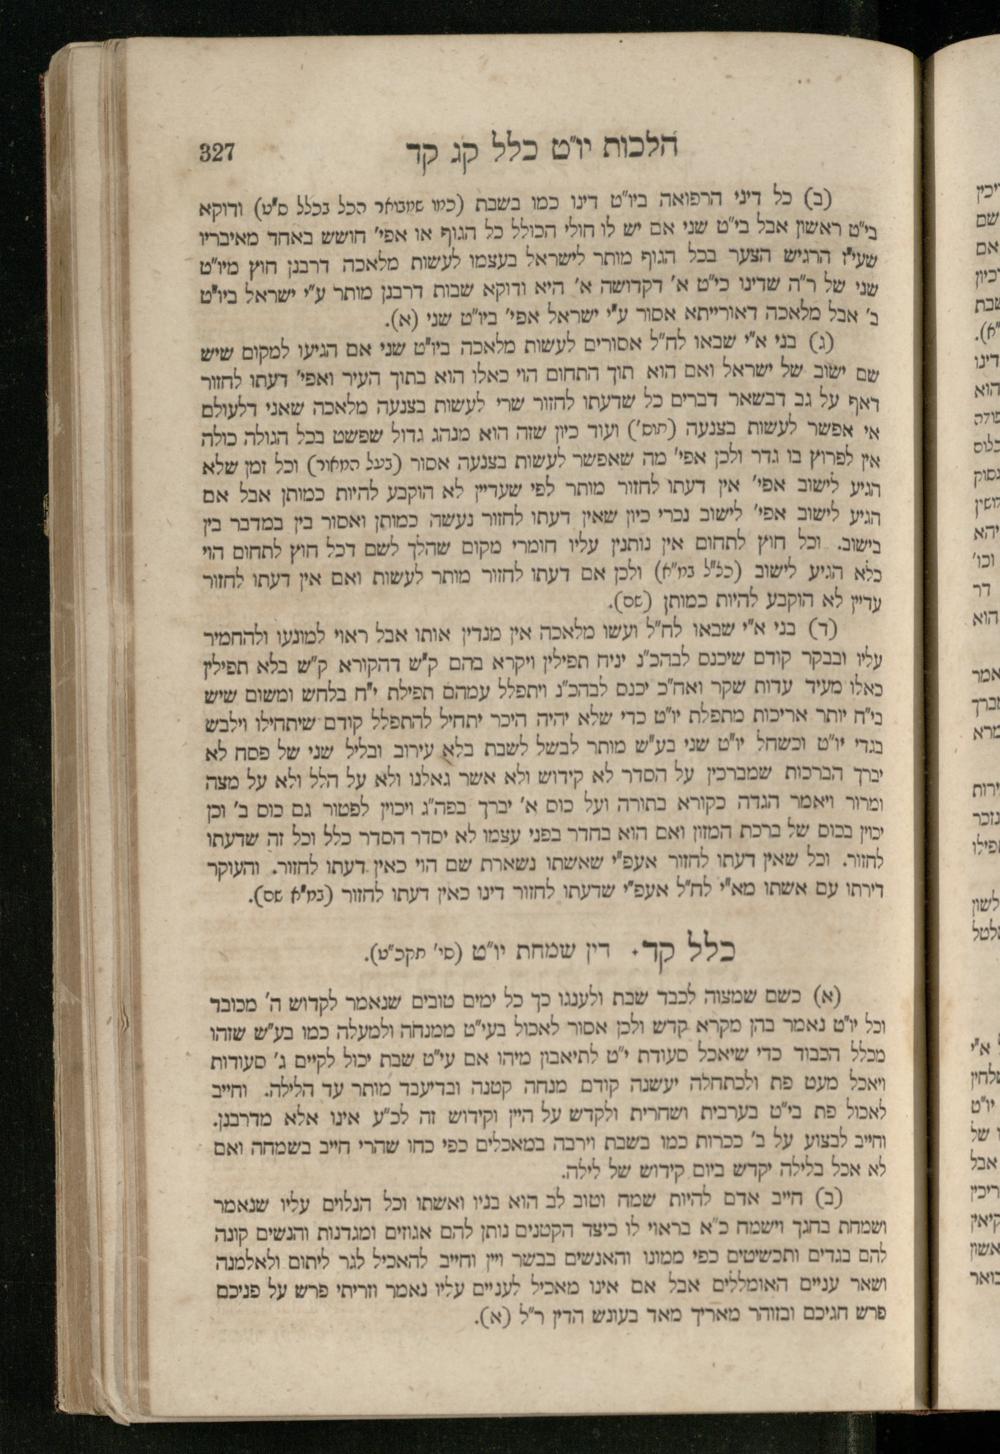 הלכות יו"ט כלל קג קד
327
(ב) כל דיני הרפואה ביו"ט דינו כמו בשבת (כמו שמבואר הכל בכלל ס"ט) ודוקא
בי"ט ראשון אבל בי"ט שני אם יש לו חולי הכולל כל הגוף או אפי' חושש באחד מאיבריו
שעי"ז הרגיש הצער בכל הגוף מותר לישראל בעצמו לעשות מלאכה דרבנן חוץ מיו"ט
שני של ר"ה שדינו כי"ט א' דקדושה א' היא ודוקא שבות דרבנן מותר ע"י ישראל ביו"ט
ב' אבל מלאכה דאורייתא אסור ע"י ישראל אפי' ביו"ט שני (א).
(ג) בני א"י שבאו לח"ל אסורים לעשות מלאכה ביו"ט שני אם הגיעו למקום שיש
שם ישוב של ישראל ואם הוא תוך התחום הוי כאלו הוא בתוך העיר ואפי' דעתו לחזור
דאף על גב דבשאר דברים כל שדעתו לחזור שרי לעשות בצנעה מלאכה שאני דלעולם
אי אפשר לעשות בצנעה (תוס') ועוד כיון שזה הוא מנהג גדול שפשט בכל הגולה כולה
אין לפרוץ בו גדר ולכן אפי' מה שאפשר לעשות בצנעה אסור (בעל המאור) וכל זמן שלא
הגיע לישוב אפי' אין דעתו לחזור מותר לפי שעדיין לא הוקבע להיות כמותן אבל אם
הגיע לישוב אפי' לישוב נכרי כיון שאין דעתו לחזור נעשה כמותן ואסור בין במדבר בין
בישוב. וכל חוץ לתחום אין נותנין עליו חומרי מקום שהלך לשם דכל חוץ לתחום הוי
כלא הגיע לישוב (כנ"ל במ"א) ולכן אם דעתו לחזור מותר לעשות ואם אין דעתו לחזור
עדיין לא הוקבע להיות כמותן (שם).
(ד) בני א"י שבאו לח"ל ועשו מלאכה אין מנדין אותו אבל ראוי למונעו ולהחמיר
עליו ובבקר קודם שיכנס לבהכ"נ יניח תפילין ויקרא בהם ק"ש דהקורא ק"ש בלא תפילין
כאלו מעיד עדות שקר ואח"כ יכנס לבהכ"נ ויתפלל עמהם תפילת י"ח בלחש ומשום שיש
בי"ח יותר אריכות מתפלת יו"ט כדי שלא יהיה היכר יתחיל להתפלל קודם שיתחילו וילבש
בגדי יו"ט וכשחל יו"ט שני בע"ש מותר לבשל לשבת בלא עירוב ובליל שני של פסח לא
יברך הברכות שמברכין על הסדר לא קידוש ולא אשר גאלנו ולא על הלל ולא על מצה
ומרור ויאמר הגדה כקורא בתורה ועל כוס א' יברך בפה"ג ויכוין לפטור גם כוס ב' וכן
יכוין בכוס של ברכת המזון ואם הוא בחדר בפני עצמו לא יסדר הסדר כלל וכל זה שדעתו
לחזור. וכל שאין דעתו לחזור אעפ"י שאשתו נשארת שם הוי כאין דעתו לחזור. והעוקר
דירתו עם אשתו מא"י לח"ל אעפ"י שדעתו לחזור דינו כאין דעתו לחזור (במ"א שם).
כלל קד. דין שמחת יו"ט (סי' תקכ"ט).
(א) כשם שמצוה לכבד שבת ולענגו כך כל ימים טובים שנאמר לקדוש ה' מכובד
וכל יו"ט נאמר בהן מקרא קדש ולכן אסור לאכול בעי"ט ממנחה ולמעלה כמו בע"ש שזהו
מכלל הכבוד כדי שיאכל סעודת י"ט לתיאבון מיהו אם עי"ט שבת יכול לקיים ג' סעודות
ויאכל מעט פת ולכתחלה יעשנה קודם מנחה קטנה ובדיעבד מותר עד הלילה. וחייב
לאכול פת בי"ט בערבית ושחרית ולקדש על היין וקידוש זה לכ"ע אינו אלא מדרבנן.
וחייב לבצוע על ב' ככרות כמו בשבת וירבה במאכלים כפי כחו שהרי חייב בשמחה ואם
לא אכל בלילה יקדש ביום קידוש של לילה.
(ב) חייב אדם להיות שמח וטוב לב הוא בניו ואשתו וכל הנלוים עליו שנאמר
ושמחת בחגך וישמח כ"א בראוי לו כיצד הקטנים נותן להם אגוזים ומגדנות והנשים קונה
להם בגדים ותכשיטים כפי ממונו והאנשים בבשר ויין וחייב להאכיל לגר ליתום ולאלמנה
ושאר עניים האומללים אבל אם אינו מאכיל לעניים עליו נאמר וזריתי פרש על פניכם
פרש חגיכם ובזוהר מאריך מאד בעונש הדין ר"ל (א).